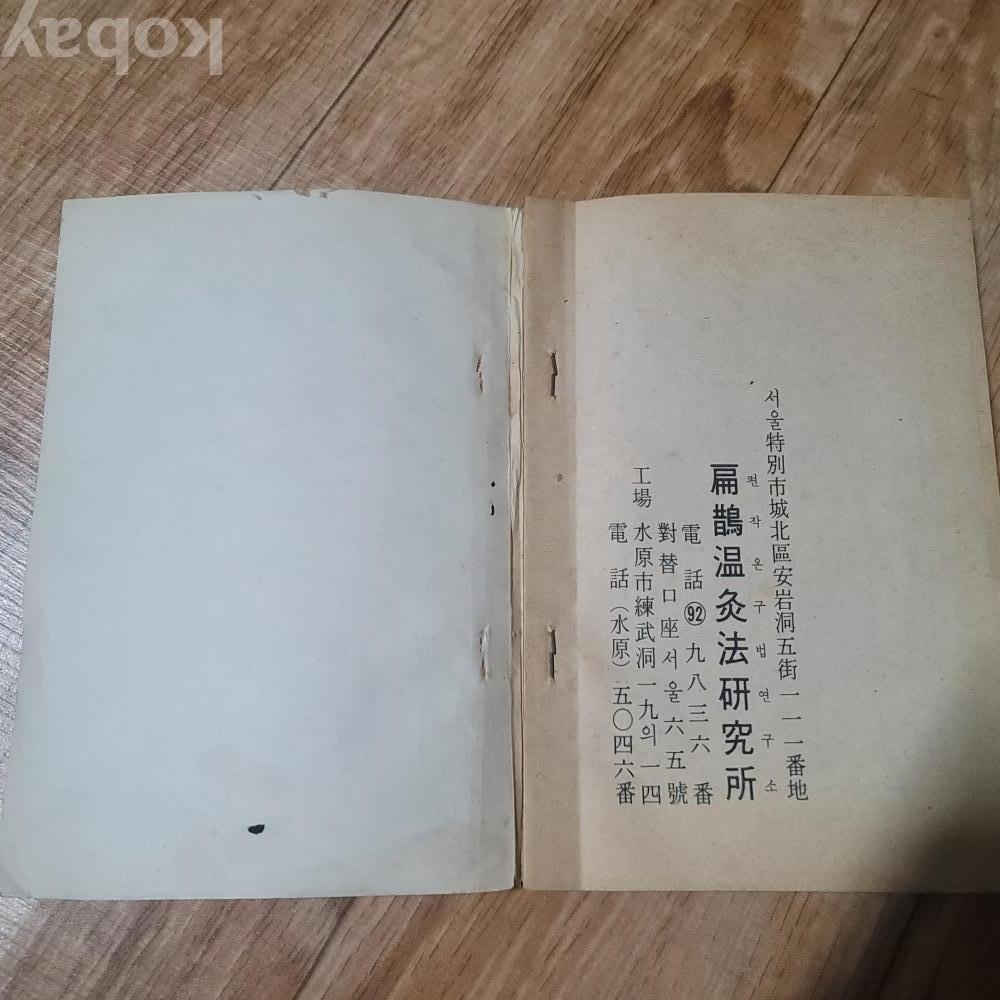 kobay
서울特別市城北區安岩洞五街一一二番地
扁鵲温灸法硏究所
편작온구법연구소
電話 ㉜ 九八三六番
對替口座서울六五號
工場 水原市練武洞一九의一四
電話(水原)五〇四六番